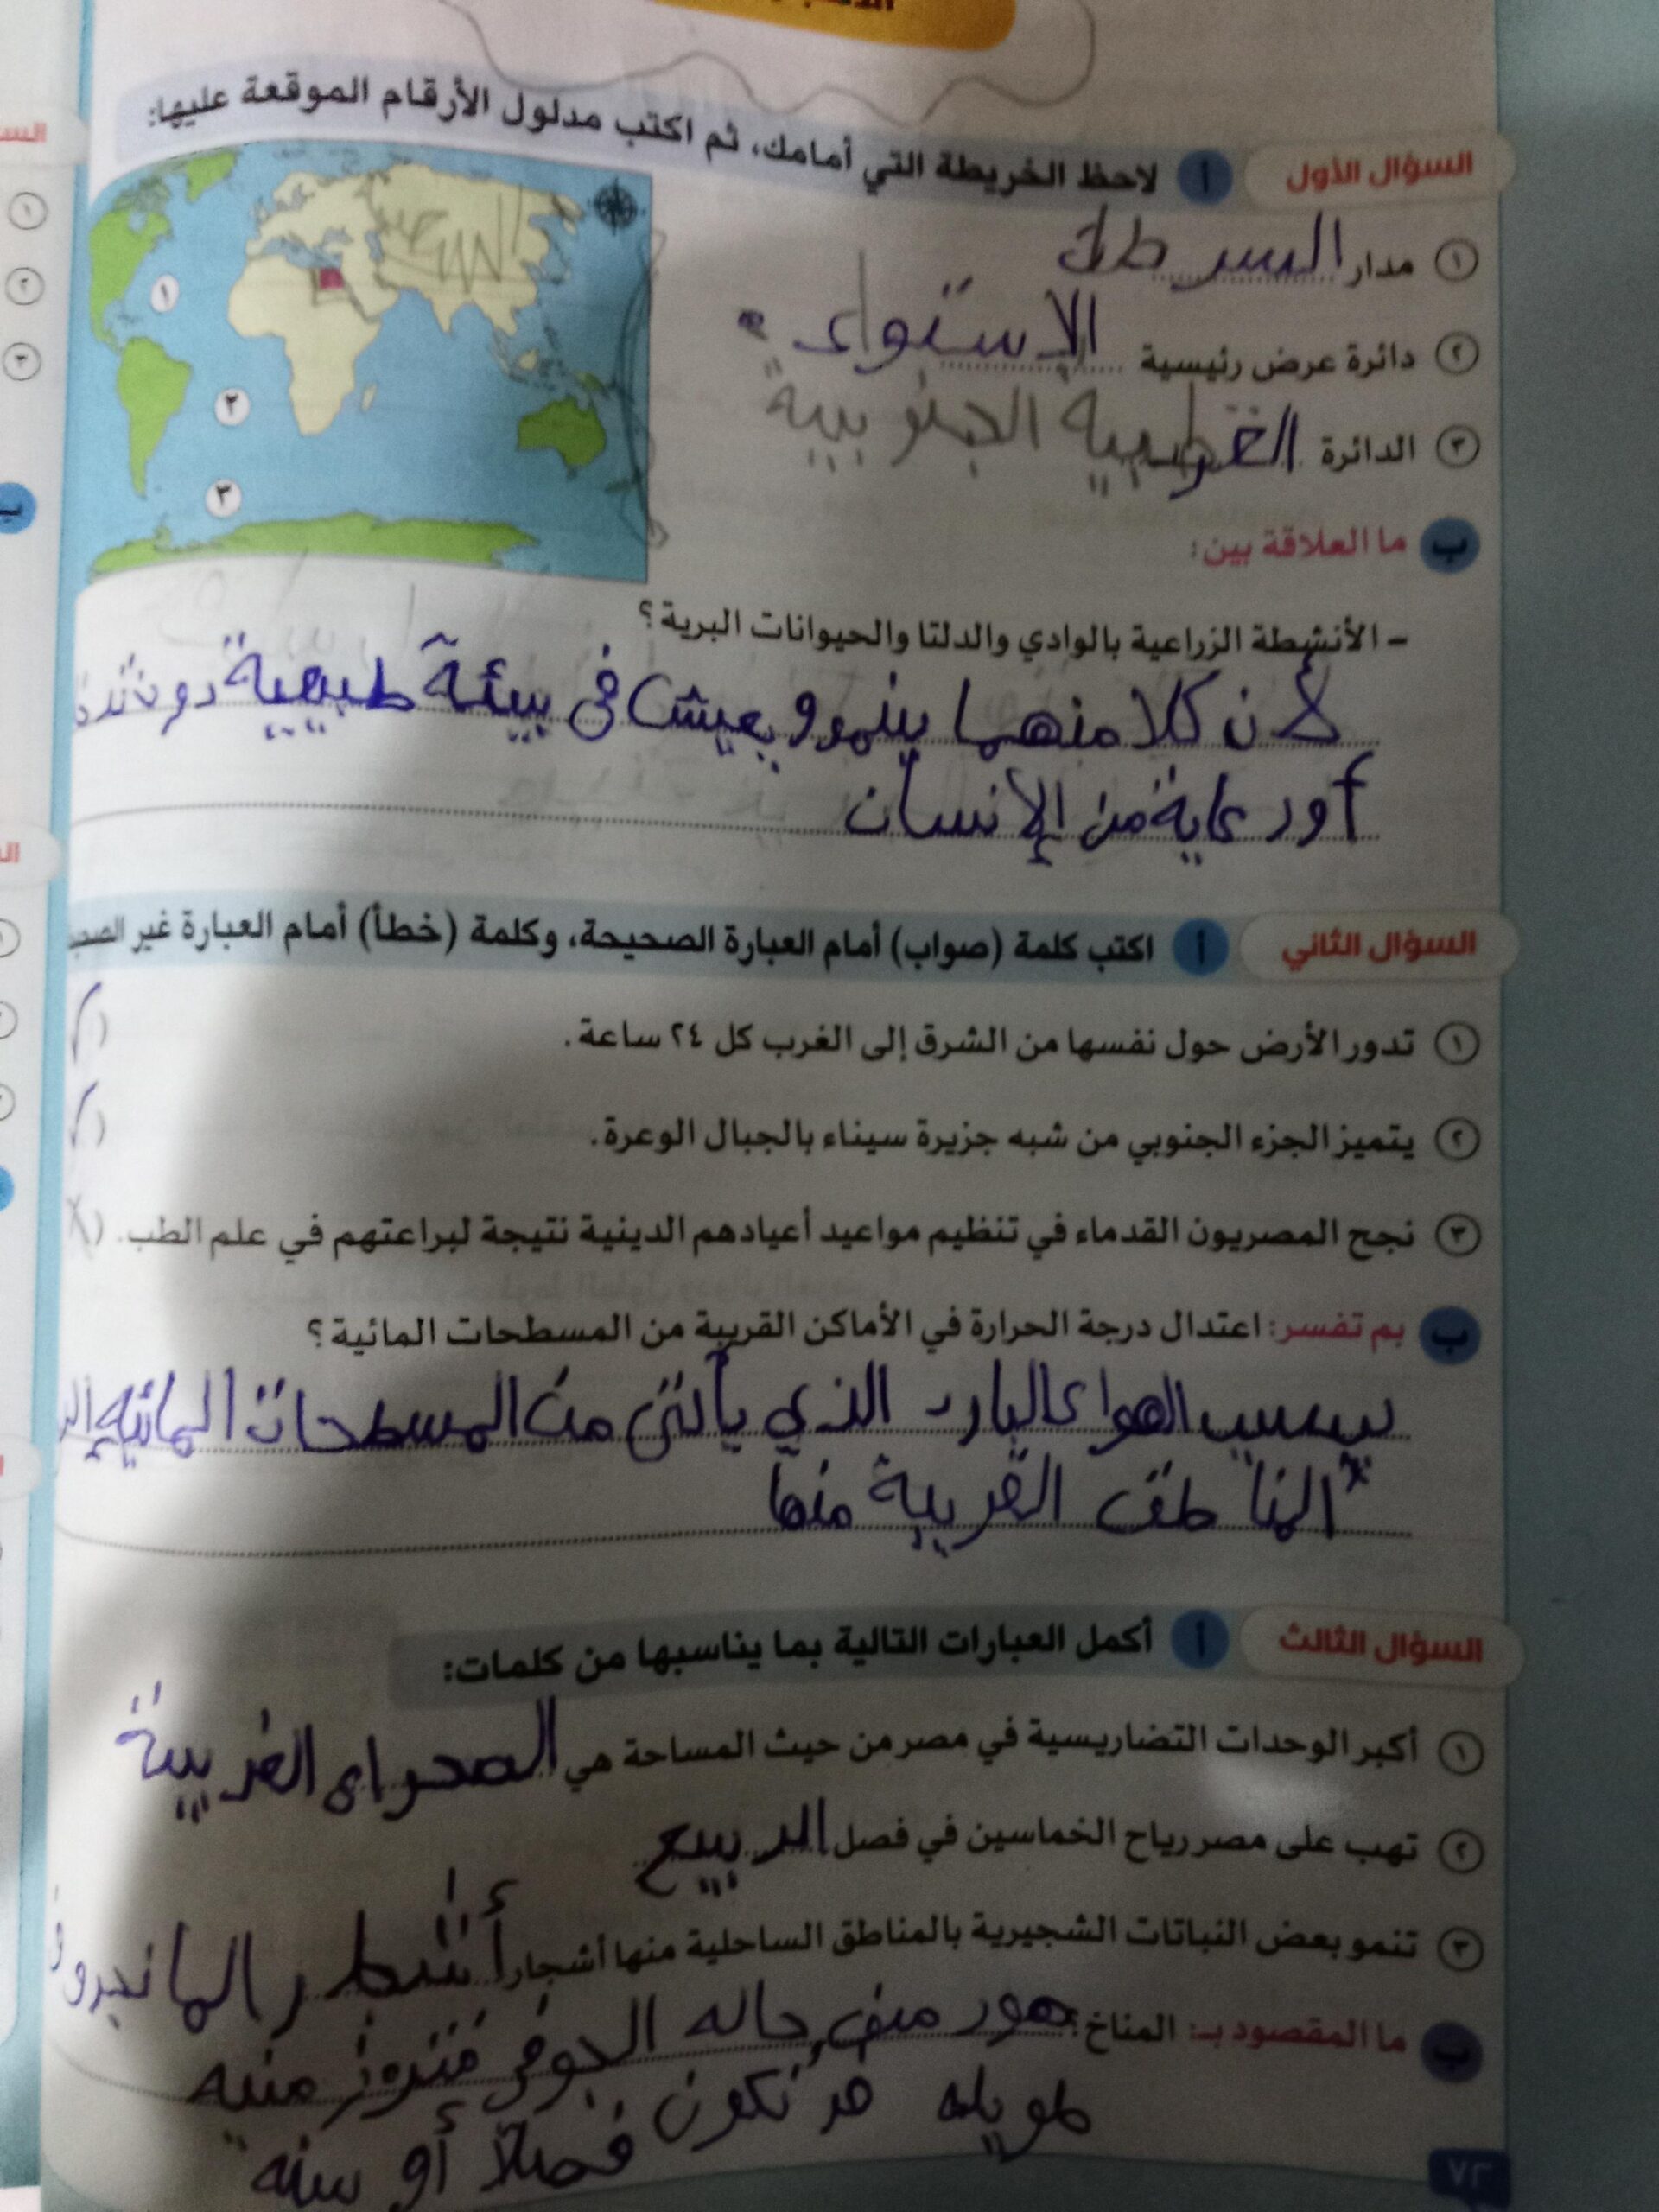 السؤال الأول أ لاحظ الخريطة التي أمامك، ثم اكتب مدلول الأرقام الموقعة عليها:
١ مدار السرطان
٢ دائرة عرض رئيسية الاستواء
٣ الدائرة القطبية الجنوبية
١
٢
٣
ب ما العلاقة بين:
- الأنشطة الزراعية بالوادي والدلتا والحيوانات البرية؟
لأن كلا منهما ينمو ويعيش فى بيئة طبيعية دون
أو رعاية من الإنسان
السؤال الثاني أ اكتب كلمة (صواب) أمام العبارة الصحيحة، وكلمة (خطأ) أمام العبارة غير
١ تدور الأرض حول نفسها من الشرق إلى الغرب كل ٢٤ ساعة. (✓)
٢ يتميز الجزء الجنوبي من شبه جزيرة سيناء بالجبال الوعرة. (✓)
٣ نجح المصريون القدماء في تنظيم مواعيد أعيادهم الدينية نتيجة لبراعتهم في علم الطب. (X)
ب بم تفسر: اعتدال درجة الحرارة في الأماكن القريبة من المسطحات المائية؟
بسبب الهواء البارد الذي يأتى من المسطحات المائيه
المناطق القريبة منها
السؤال الثالث أ أكمل العبارات التالية بما يناسبها من كلمات:
١ أكبر الوحدات التضاريسية في مصر من حيث المساحة هي الصحراء الغربية
٢ تهب على مصر رياح الخماسين في فصل الربيع
٣ تنمو بعض النباتات الشجيرية بالمناطق الساحلية منها أشجار
ب ما المقصود بـ: المناخ؟ هو حاله الجو فى فتره منيه
طويله تكون فصلاً أو سنه
٧٢